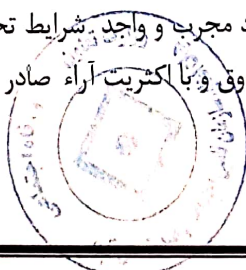 د مجرب و واجد شرایط تح
وق و با اکثریت آراء صادر